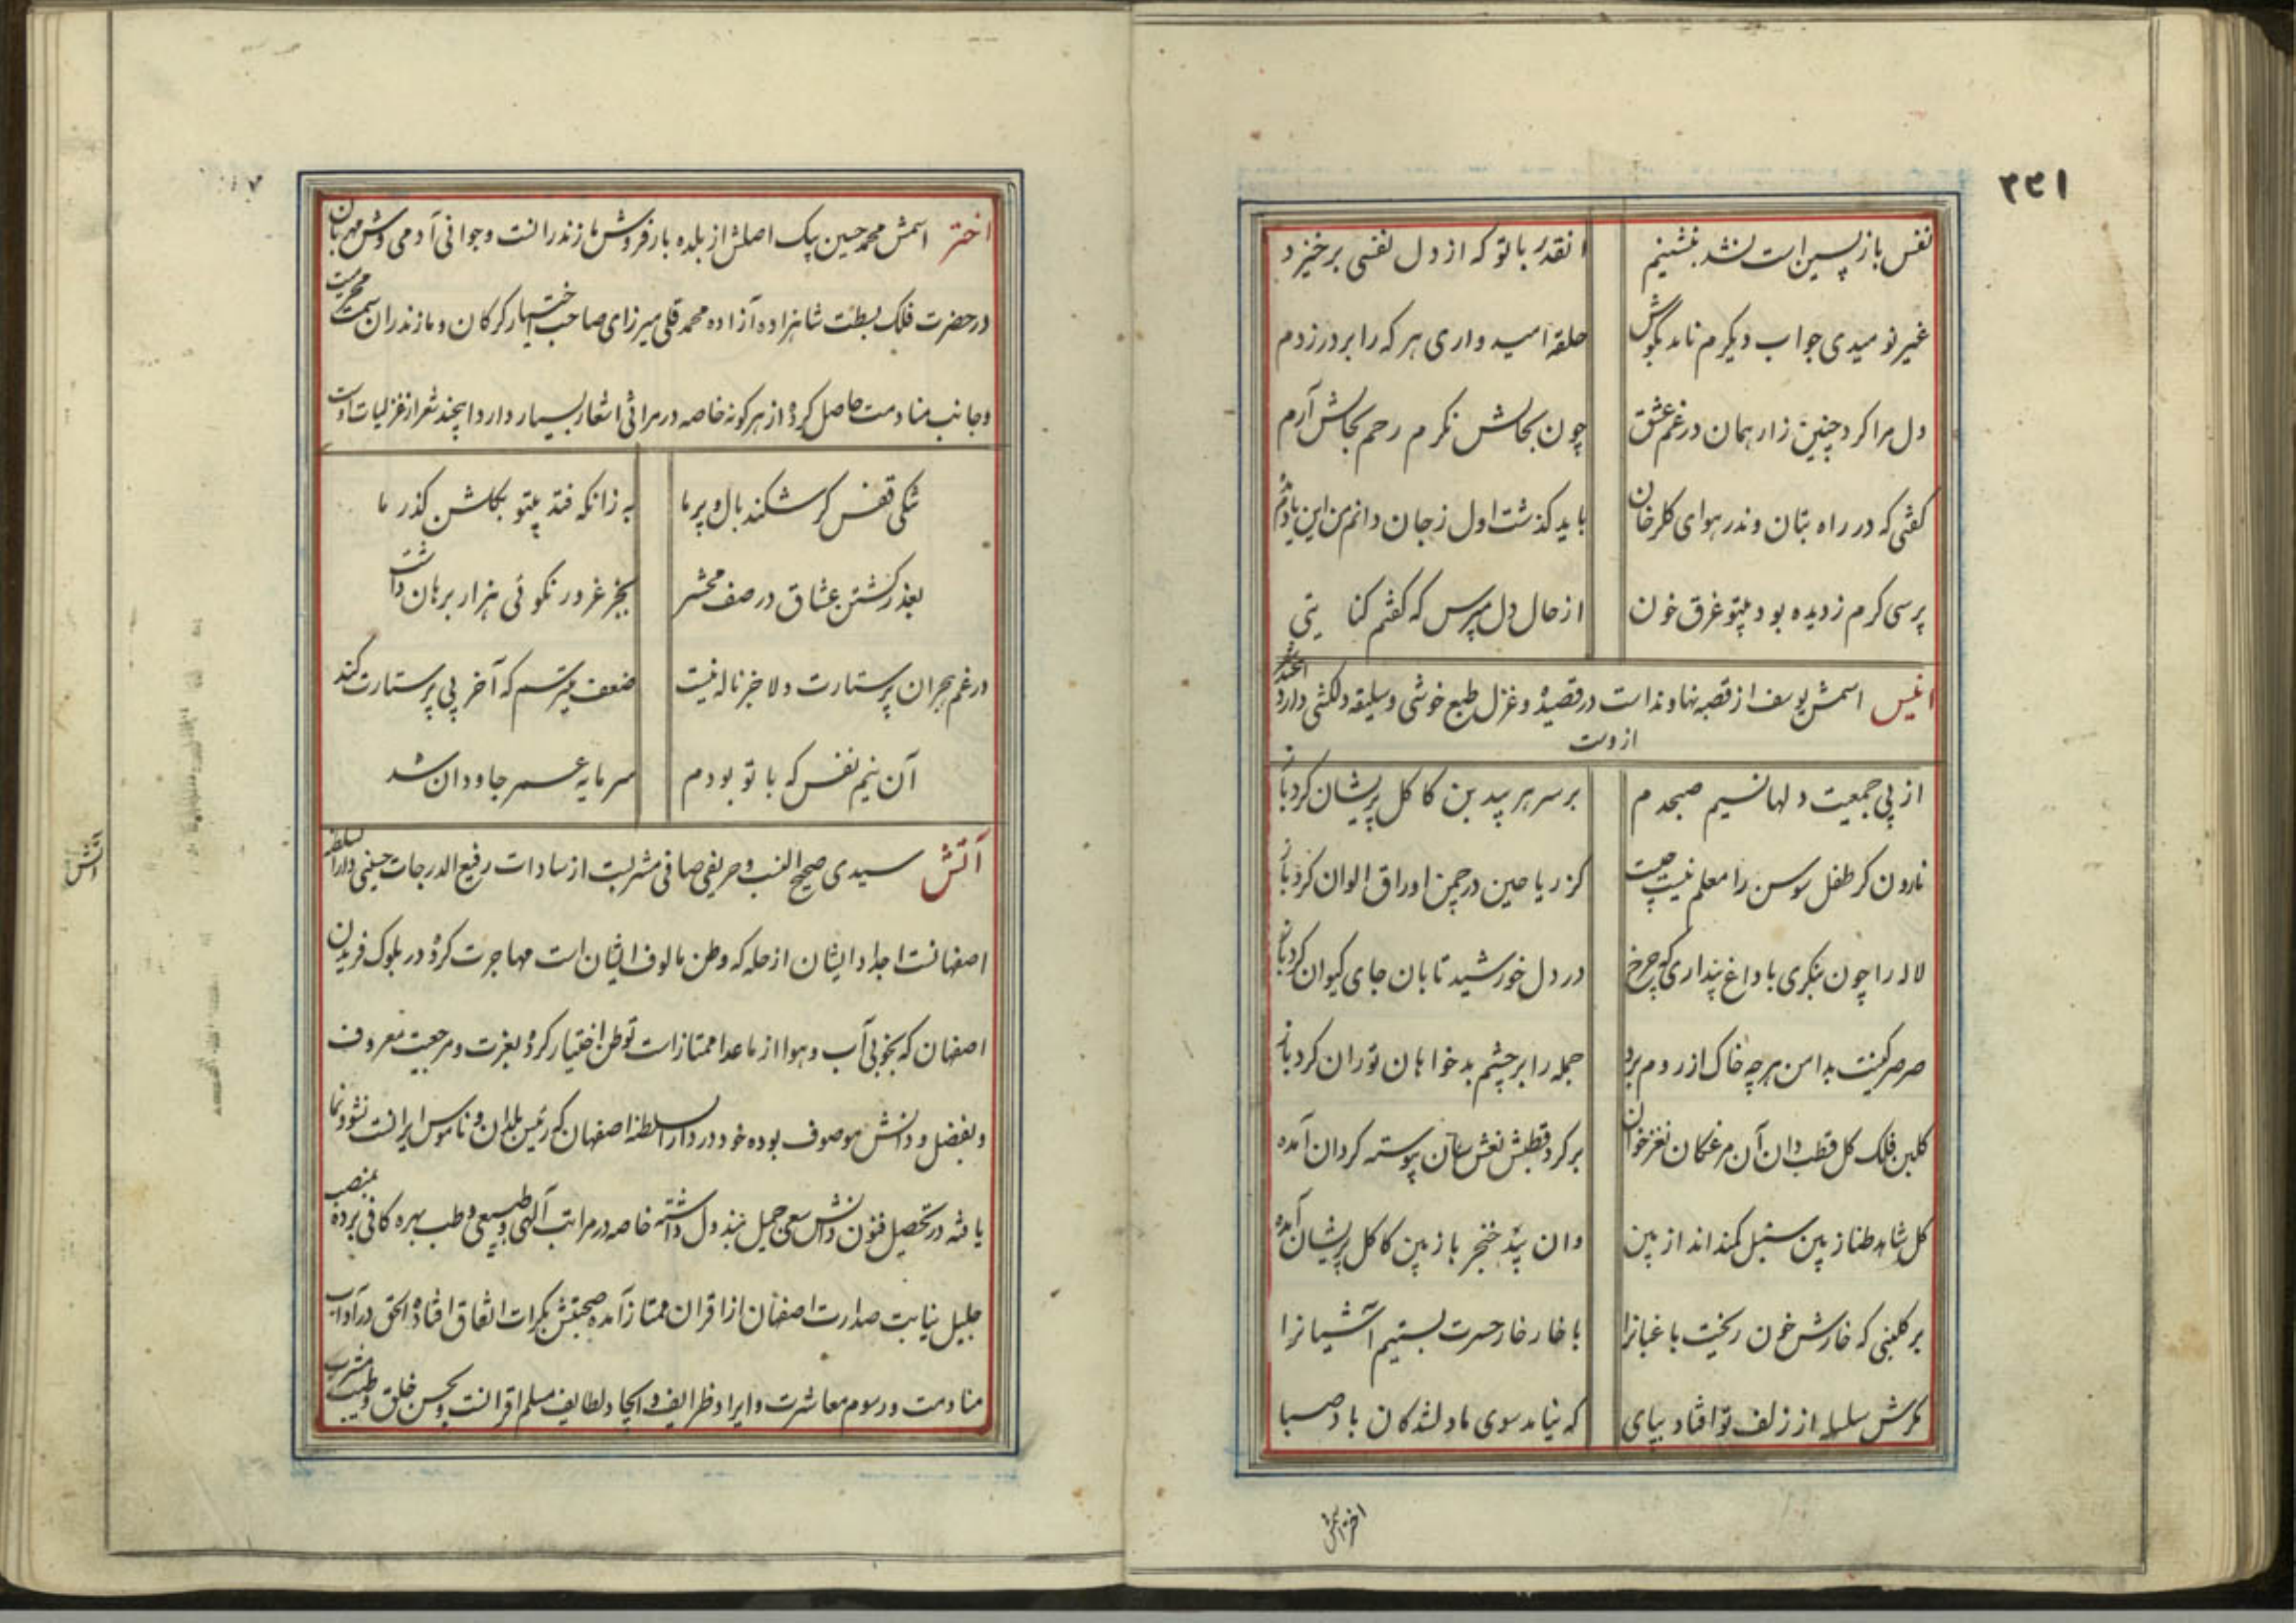 ۲۳۱
نفس بازپسین است نشد بنشینم انقدر با تو که از دل نفسی برخیزد
غیر نومیدی جواب دیگرم نامد بگوش حلقه امیدواری هر که را بر در زدم
دل مرا کرد چنین زار همان در غم عشق چون بحالش نگرم رحم بحالش آرم
گفتی که در راه بتان وندر هوای گلرخان باید گذشت اول ز جان دانم من این
پرسی گرم ز دیده بود بیتو غرق خون از حال دل مپرس که گفتم کنایتی
انیس اسمش یوسف از قصبه نهاوند است در قصیده و غزل طبع خوشی و سلیقه دلکشی دارد
از وست
از پی جمعیت دلها نسیم صبحدم بر سر هر بید بن کاکل پریشان کرد باز
نارون گر طفل سوسن را معلم نیست چیست کز ریاحین در چمن اوراق الوان کرد باز
لاله را چون بنگری با داغ پنداری که چرخ در دل خورشید تابان جای کیوان کرد باز
صرصر کینت بدامن هر چه خاک از روم برد جمله را بر چشم بدخواهان توران کرد باز
گلبن فلک گل قطب دان آن مرغکان نغز خوان بر گرد قطبش نعش سان پیوسته گردان آمده
گل شاهد طناز بین سنبل کمند انداز بین وان بید خنجر باز بین کاکل پریشان آمده
بر گلبنی که خارش خون ریخت باغبانرا با خار خار حسرت بستیم آشیانرا
مگرش سلسله از زلف تو افتاد بپای که نیامد سوی ما دلشدگان باد صبا
اختر اسمش
اختر اسمش محمد حسین بیک اصلش از بلده بارفروش مازندرانست و جوانی آدمی وش مهربان
در حضرت فلک بسطت شاهزاده آزاده محمد قلی میرزای صاحب اختیار گرگان و مازندران سمت محرمیت
و جانب منادمت حاصل کرده از هر گونه خاصه در مراثی اشعار بسیار دارد اینچند شعر از غزلیات اوست
تنگی قفس گر شکند بال و پر ما به زانکه فتد بیتو بگلشن گذر ما
بعذر کشتن عشاق در صف محشر بجز غرور نکوئی هزار برهان داشت
در غم هجران پرستارت دلا جز ناله نیست ضعف میترسم که آخر بی پرستارت کند
آن نیم نفس که با تو بودم سرمایه عمر جاودان شد
آتش سیدی صحیح النسب و حریفی صافی مشربست از سادات رفیع الدرجات حسینی دار السلطنه
اصفهانست اجداد ایشان از حله که وطن مالوف ایشان است مهاجرت کرده در بلوک فریدن
اصفهان که بخوبی آب و هوا از ماعدا ممتاز است توطن اختیار کرده بعزت و مرجعیت معروف
و بفضل و دانش موصوف بوده خود در دار السلطنه اصفهان که رئیس بلدان و ناموس ایرانست نشو و نما
یافته در تحصیل فنون دانش سعی جمیل مبذول داشته خاصه در مراتب آلهی و طبیعی و طب بهره کافی برده بمنصب
جلیل نیابت صدارت اصفهان از اقران ممتاز آمده صحبتش بکرات اتفاق افتاده الحق در آداب
منادمت و رسوم معاشرت و ایراد ظرایف و ایجاد لطایف مسلم اقرانست بحسن خلق و طیب مشرب
آتش